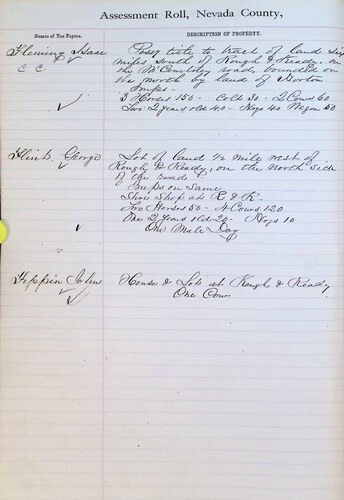 Assessment Roll, Nevada County,
Names of Tax Payers.
DESCRIPTION OF PROPERTY.
Fleming Isaac
C C
Possy title to tract of land six
miles south of Rough & Ready, on
the road, bounded on
the north by land of Horton
Imps -
3 Horses 150 - Colt 30 - 2 Cows 60
Two 2 years old 40 - Hogs 40 Wagon 50
Flint, George
Lot of land ½ mile west of
Rough & Ready, on the North side
of the road
Imps on Same
Shoe Shop at R & R -
Two Horses 50 - 4 Cows 120
One 2 years old 20 - Hogs 10
One Male Dog
John
House & Lot at Rough & Ready
One Cow